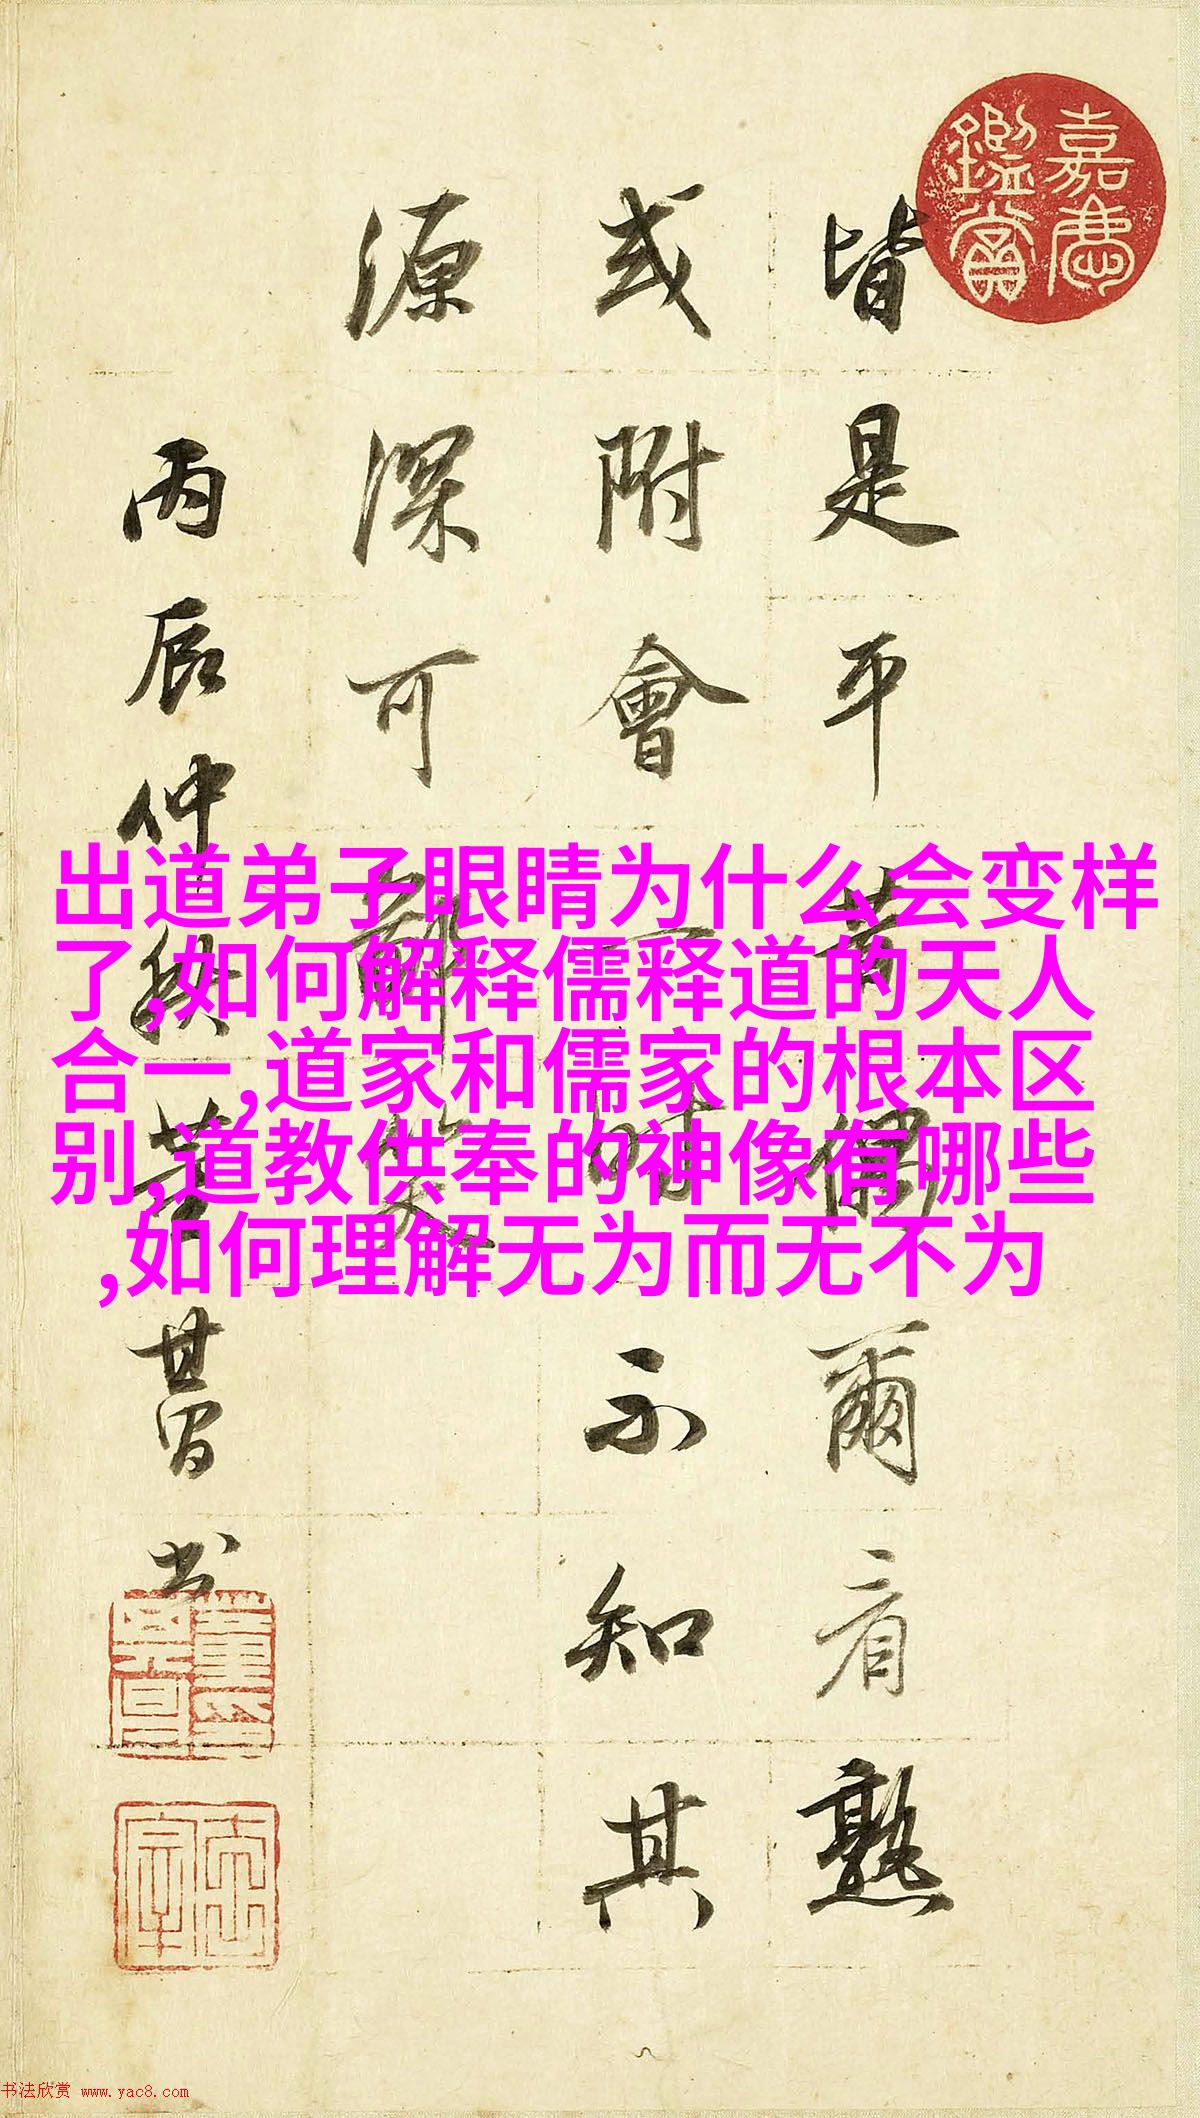 嘉慶
鑑賞
皆是平昔偶爾看熟
或附會一時不知其
源深可鄙笑
丙辰仲秋董其昌书
出道弟子眼睛为什么会变样
了,如何解释儒释道的天人
合一,道家和儒家的根本区
别,道教供奉的神像有哪些
,如何理解无为而无不为
书法欣赏 www.yac8.com